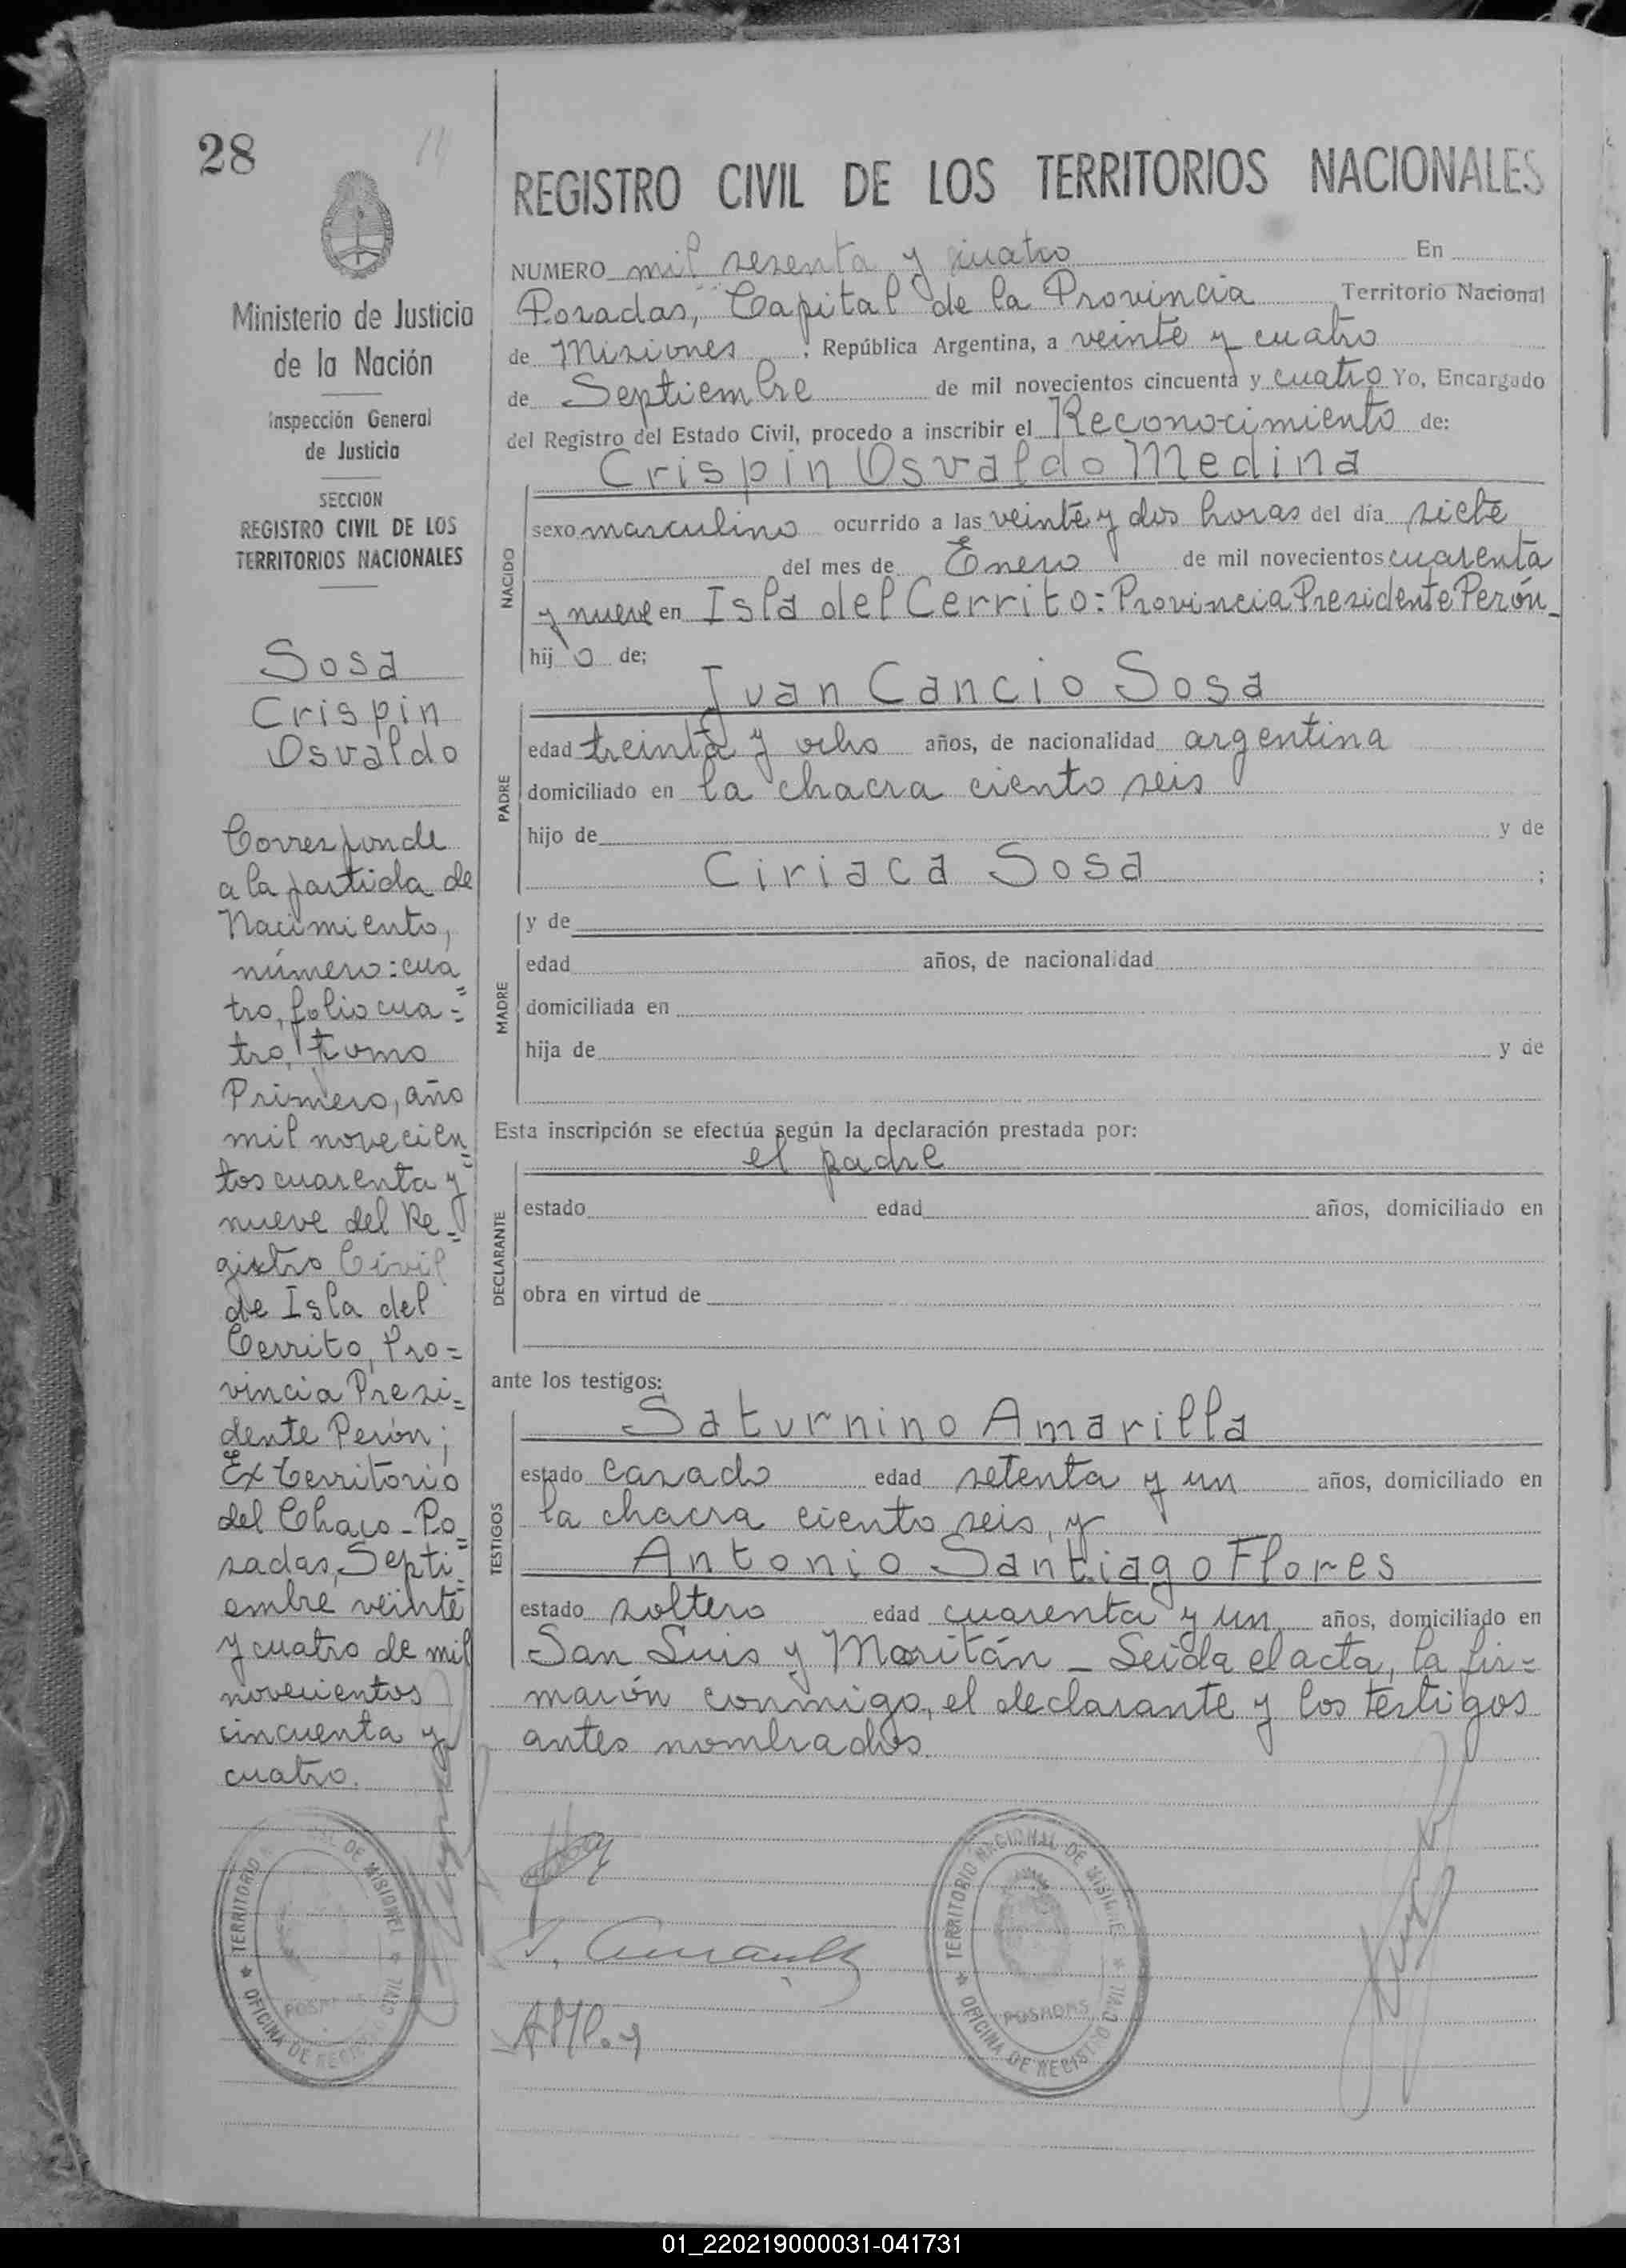 28
Ministerio de Justicia
de la Nación
Inspección General
de Justicia
SECCION
REGISTRO CIVIL DE LOS
TERRITORIOS NACIONALES
Sosa
Crispin
Osvaldo
Corresponde
a la partida de
Nacimiento,
número: cua
tro, folio cua=
tro, tomo
Primero, año
mil novecien=
tos cuarenta y
nueve del Re=
gistro Civil
de Isla del
Cerrito, Pro=
vincia Presi=
dente Perón;
Ex territorio
del Chaco - Po=
sadas, Septi=
embre veinte
y cuatro de mil
novecientos
cincuenta y
cuatro.
TERRITORIO DE MISIONES
OFICINA DE REGISTRO CIVIL
POSADAS
REGISTRO CIVIL DE LOS TERRITORIOS NACIONALES
NUMERO mil sesenta y cuatro En
Posadas, Capital de la Provincia Territorio Nacional
de Misiones, República Argentina, a veinte y cuatro
de Septiembre de mil novecientos cincuenta y cuatro Yo, Encargado
del Registro del Estado Civil, procedo a inscribir el Reconocimiento de:
Crispin Osvaldo Medina
NACIDO
sexo masculino ocurrido a las veinte y dos horas del día siete
del mes de Enero de mil novecientos cuarenta
y nueve en Isla del Cerrito: Provincia Presidente Perón_
hijo de;
Juan Cancio Sosa
PADRE
edad treinta y ocho años, de nacionalidad argentina
domiciliado en la chacra ciento seis
hijo de y de
Ciriaca Sosa ;
y de
MADRE
edad años, de nacionalidad
domiciliada en
hija de y de
Esta inscripción se efectúa según la declaración prestada por:
el padre
DECLARANTE
estado edad años, domiciliado en
obra en virtud de
ante los testigos:
Saturnino Amarilla
TESTIGOS
estado casado edad setenta y un años, domiciliado en
la chacra ciento seis, y
Antonio Santiago Flores
estado soltero edad cuarenta y un años, domiciliado en
San Luis y Moritán _ Leída el acta, la fir=
marón conmigo, el declarante y los testigos
antes nombrados
TERRITORIO NACIONAL DE MISIONES
OFICINA DE REGISTRO CIVIL
POSADAS
01_220219000031-041731